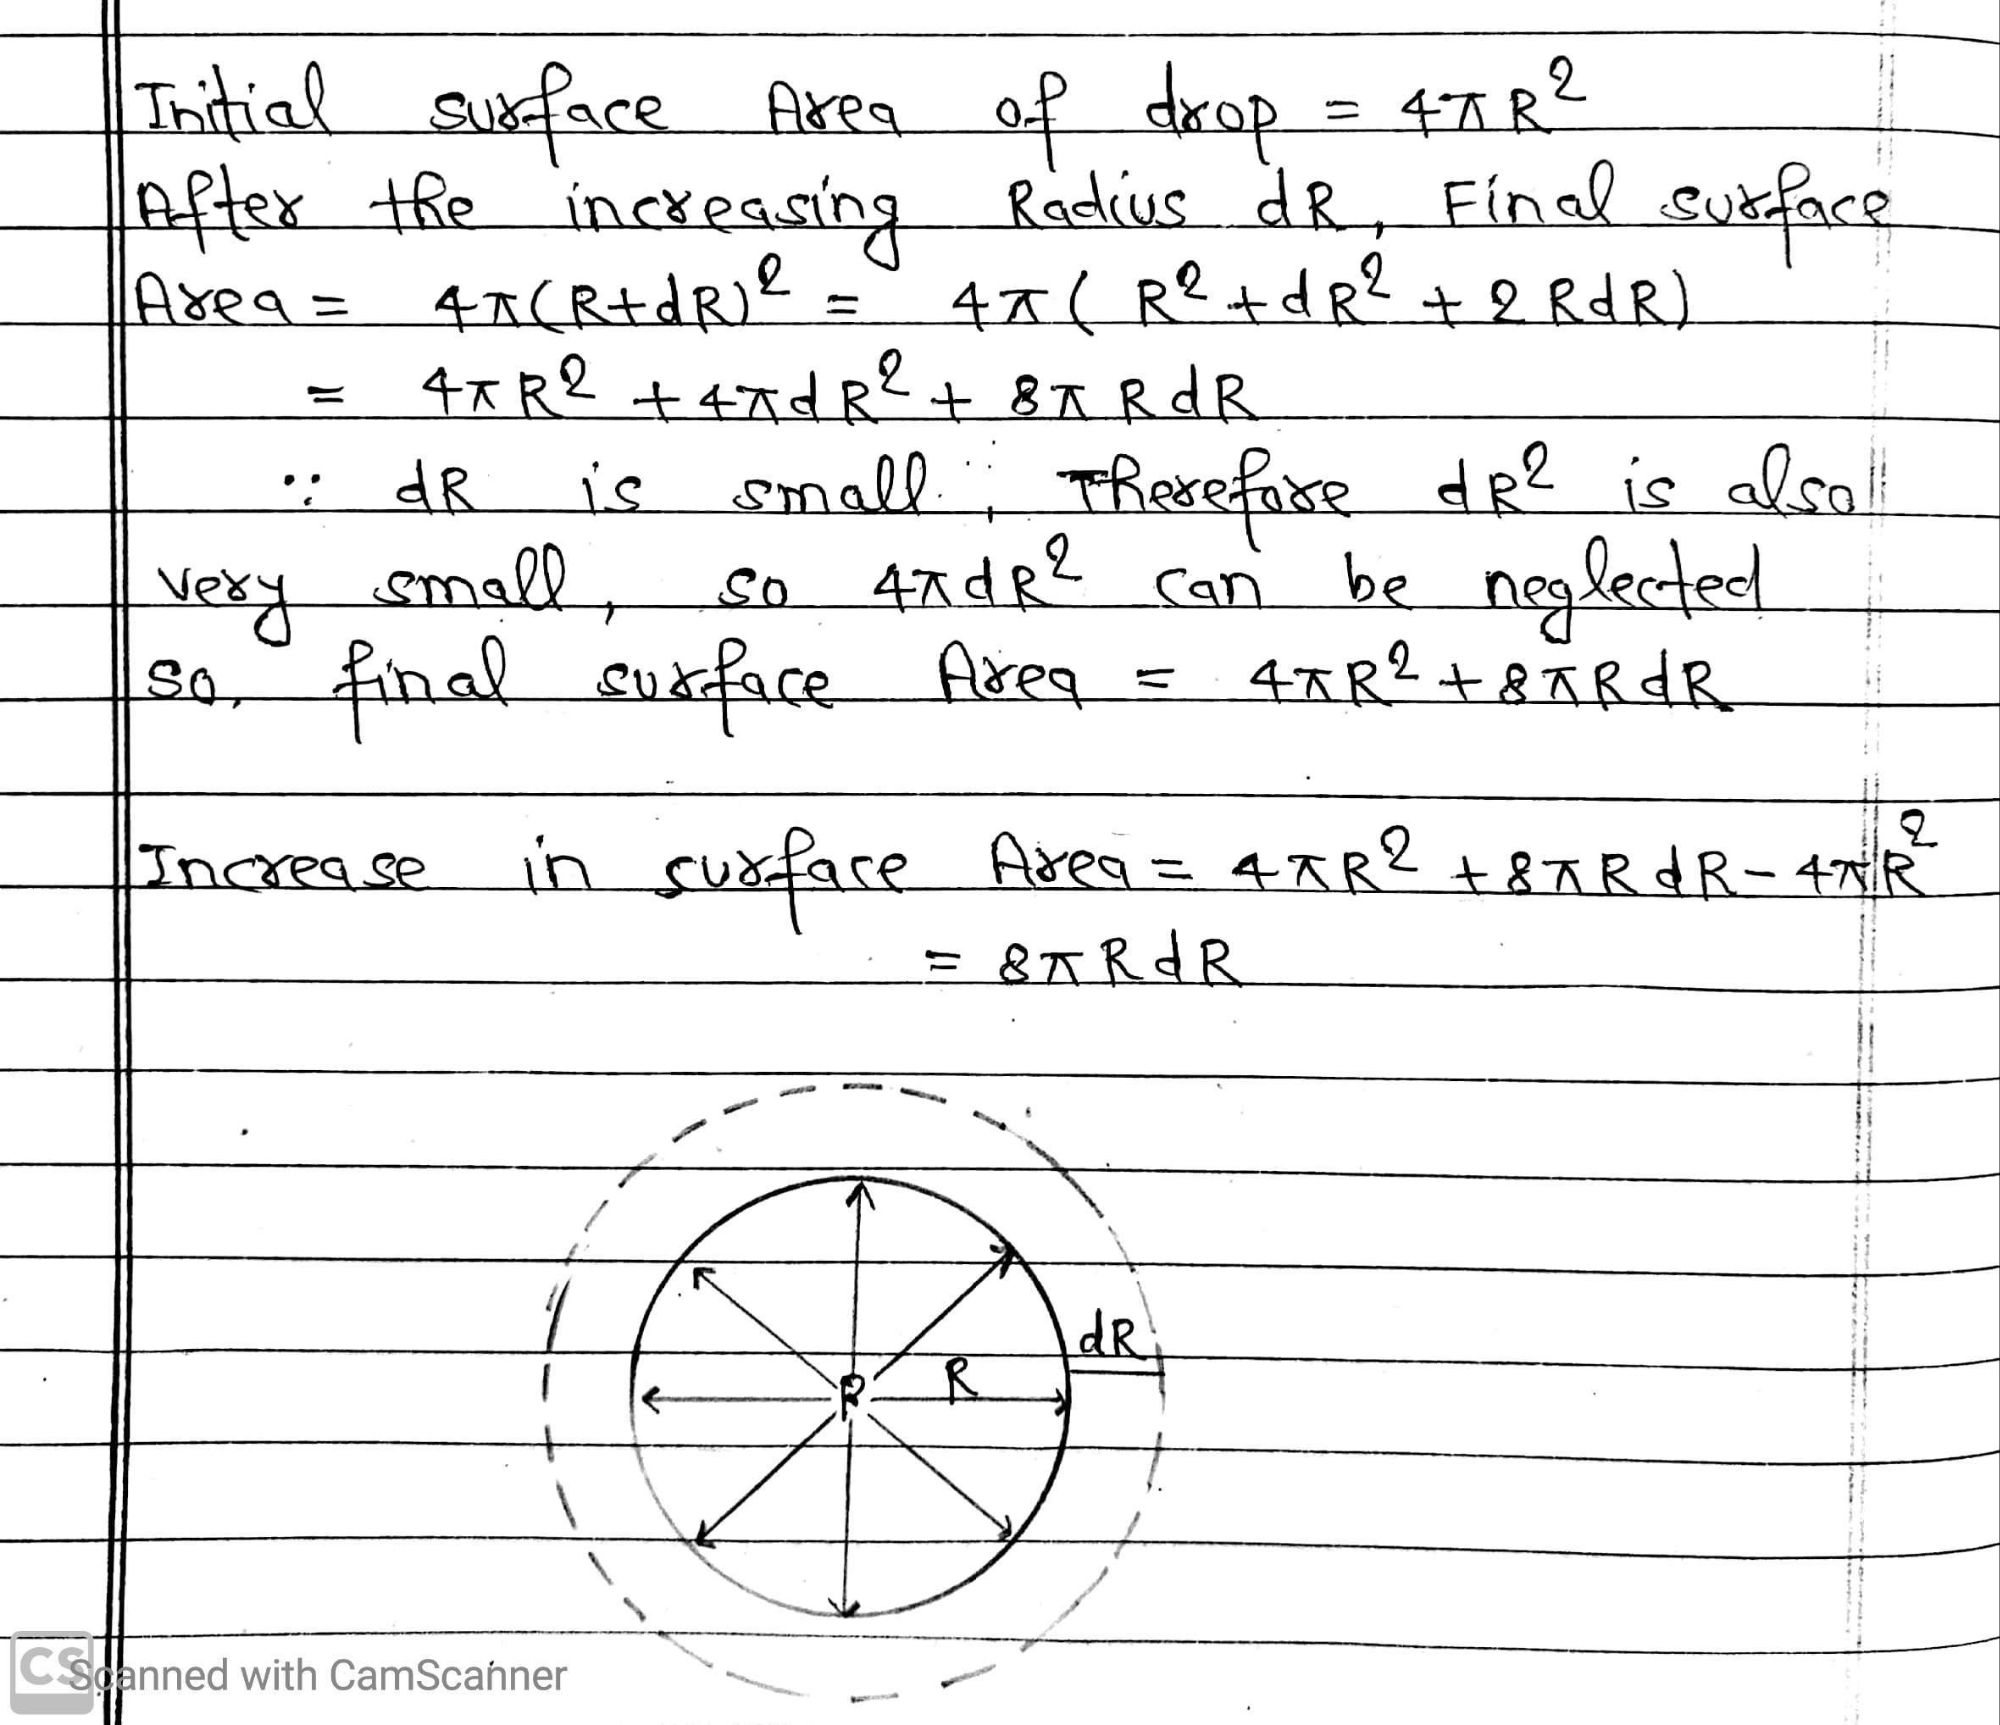 Initial surface Area of drop = 4πR²
After the increasing Radius dR, Final surface
Area = 4π(R+dR)² = 4π( R² + dR² + 2RdR)
= 4πR² + 4πdR² + 8πRdR
∵ dR is small, Therefore dR² is also
very small, so 4πdR² can be neglected
so, final surface Area = 4πR² + 8πRdR
Increase in surface Area = 4πR² + 8πRdR - 4πR²
= 8πRdR
dR
R
P
CS Scanned with CamScanner